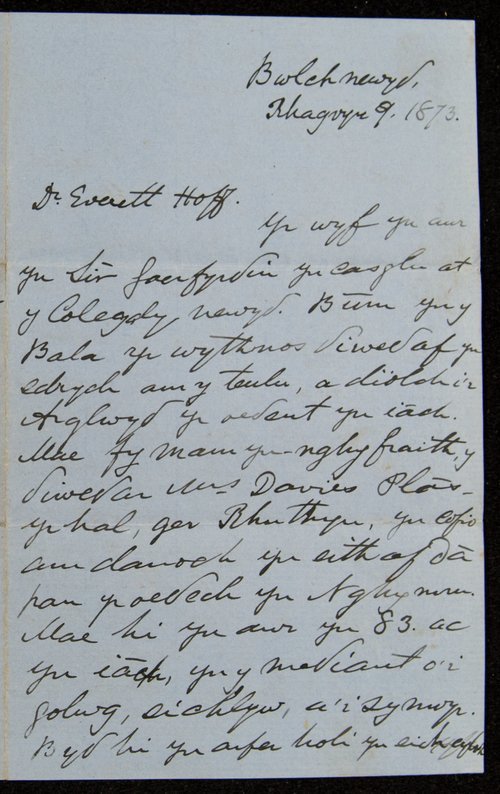 Bwlchnewyd,
Rhagvyr 9. 1873.
Dr. Everett Hoff.
yr wyf yn awr
yn Sir Gaerfyrdin yn casglu at
y Colegdy newyd. Bum yn y
Bala yr wythnos diwedaf yn
edrych am y teulu, a diolch i'r
Arglwyd yr oedent yn iâch.
Mae fy mam yn-nghyfraith, y
diwedar Mrs Davies Plâs-
yr hal, ger Rhuthyn, yn cofio
am danoch yr eithaf dâ
pan yr oedech yn Nghymru.
Mae hi yn awr yn 83. ac
yn iâch, yn y mediant o'i
golwg, ei chlyw, a'i synwyr.
Byd hi yn arfer holi yn